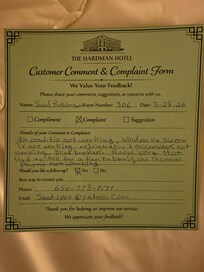 THE HARDMAN HOTEL
Customer Comment & Complaint Form
We Value Your Feedback!
Please share your comments, suggestions, or concerns with us.
Name: Room Number: 306 Date: 3-28-26
Compliment Complaint Suggestion
Details of Your Comment or Complaint:
Air conditio not working, Window no screen
TV not working, refrigerator & microwave not
working, blind broken. Room warm. Hot
Had to for a fan to bring
Phone not working
Would you like a follow-up? Yes No
Best way to contact you:
Phone:
Email: @yahoo.com
Thank you for helping us improve our service.
We appreciate your feedback!